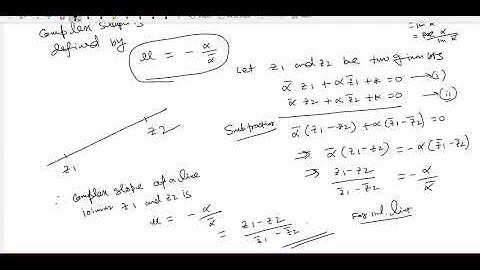 Complex slope is
defined by
u = - α/ᾱ
= Im α
= Re α / Im α
Let z1 and z2 be two given
ᾱ z1 + α z̄1 + k = 0 → (i)
ᾱ z2 + α z̄2 + k = 0 → (ii)
Subtraction
ᾱ (z1 - z2) + α (z̄1 - z̄2) = 0
⇒ ᾱ (z1 - z2) = - α (z̄1 - z̄2)
⇒ (z1 - z2)/(z̄1 - z̄2) = - α/ᾱ
z1
z2
∴ Complex slope of a line
joining z1 and z2 is
u = - α/ᾱ = (z1 - z2)/(z̄1 - z̄2)